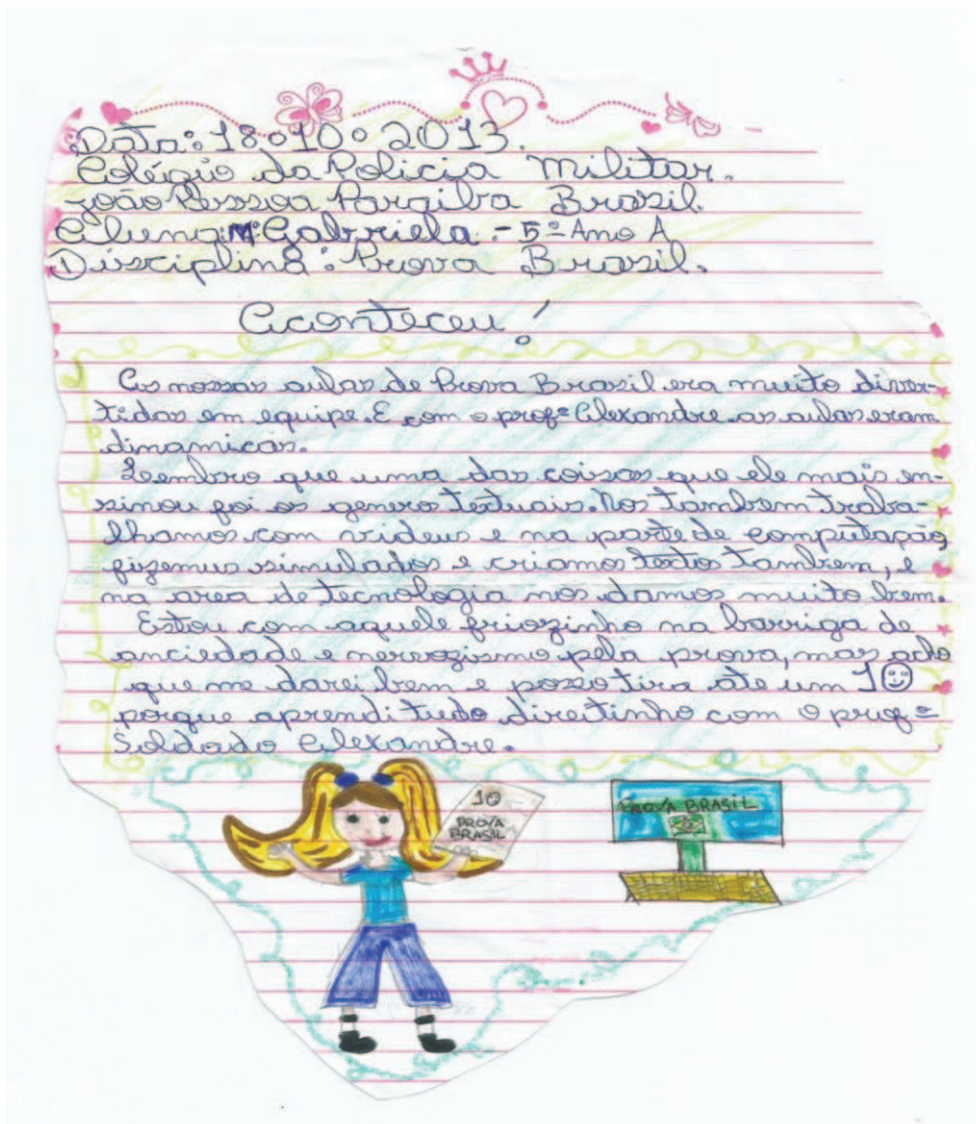 Data: 18.10.2013.
Colégio da Policia Militar.
João Pessoa Paraiba Brasil.
Aluna: Mª Gabriela - 5º Ano A
Disciplina: Prova Brasil.
Aconteceu!
As nossas aulas de Prova Brasil era muito diver-
tidas em equipe. E com o profº Alexandre as aulas eram
dinamicas.
Lembro que uma das coisas que ele mais en-
sinou foi os genero textuais. Nos tambem traba-
lhamos com videus e na parte de computação,
fizemus simulados e criamos texto tambem, e
na area de tecnologia nos damos muito bem.
Estou com aquele friozinho na barriga de
anciedade e nervozismo pela prova, mas acho
que me darei bem e posso tira ate um 10
porque aprendi tudo direitinho com o profº
Soldado Alexandre.
10
PROVA
BRASIL
PROVA BRASIL